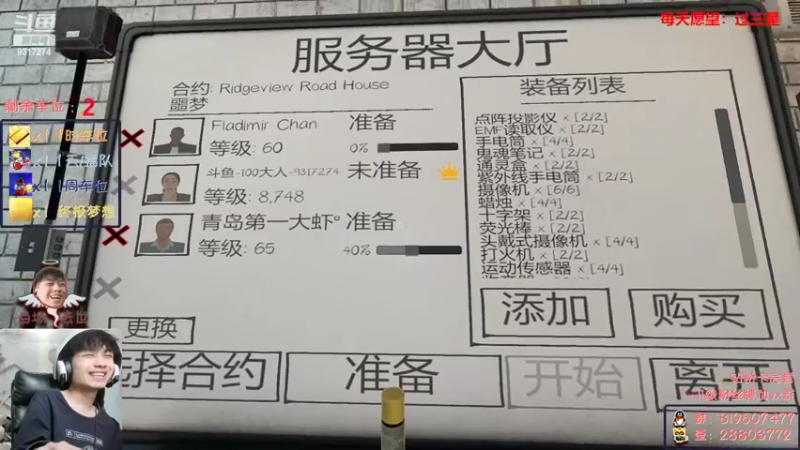 斗鱼
9317274
每天愿望：过三星
服务器大厅
合约: Ridgeview Road House
噩梦
装备列表
剩余车位：2
Fladimir Chan 准备
等级: 60 0%
斗鱼-100大人-9317274 未准备
等级: 8,748
青岛第一大虾° 准备
等级: 65 40%
点阵投影仪 x [2/2]
EMF读取仪 x [2/2]
手电筒 x [4/4]
鬼魂笔记 x [2/2]
通灵盒 x [2/2]
紫外线手电筒 x [2/2]
摄像机 x [6/6]
蜡烛 x [4/4]
十字架 x [2/2]
荧光棒 x [2/2]
头戴式摄像机 x [4/4]
打火机 x [2/2]
运动传感器 x [4/4]
添加 购买
更换
选择合约 准备 开始 离开
群：819607477
壹：28803772